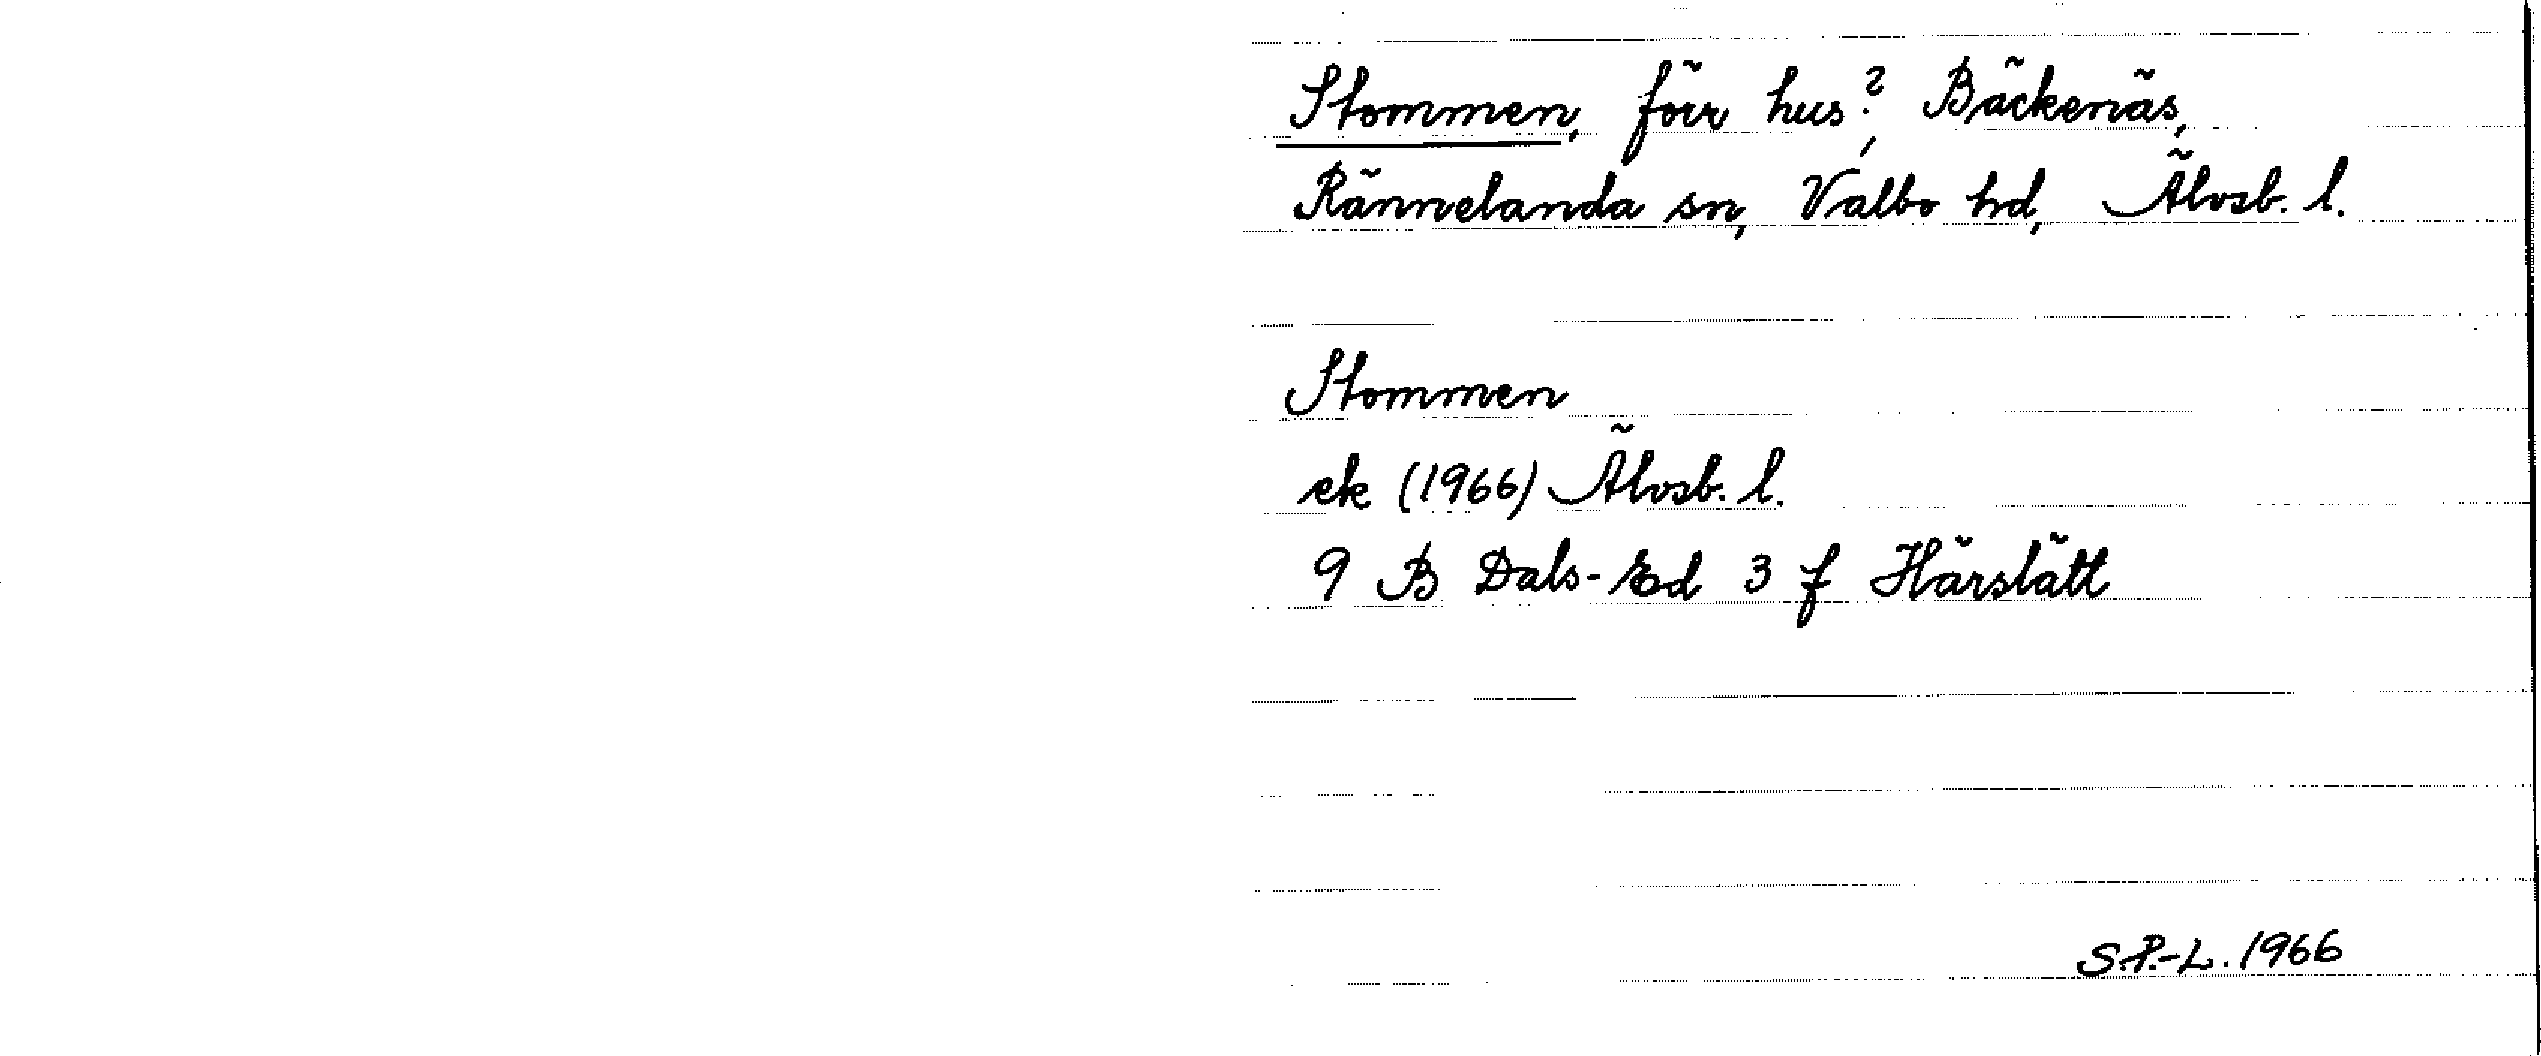 Stommen, förr hus?, Bäckenäs,
Rännelanda sn, Valbo hd, Älvsb. l.
Stommen
ek (1966) Älvsb. l.
9 B Dals-Ed 3 f Härslätt
S.P.-L. 1966